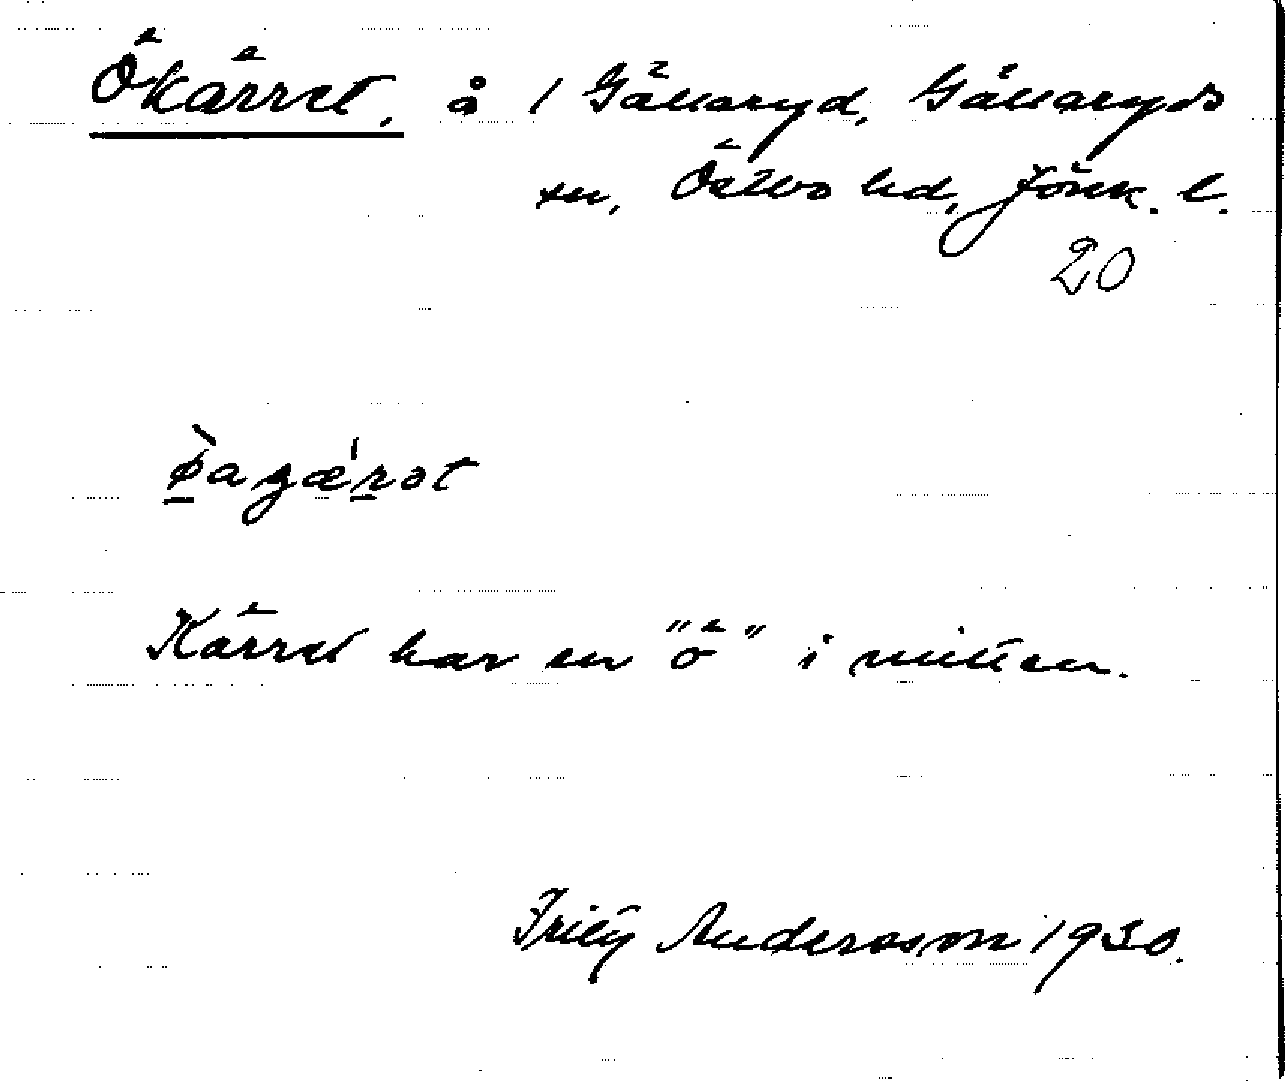 Ökärret, å 1 Gällaryd, Gällaryds
sn, Östbo hd, Jönk. l.
20
Kärret har en "ö" i mitten.
Andersson 1930.